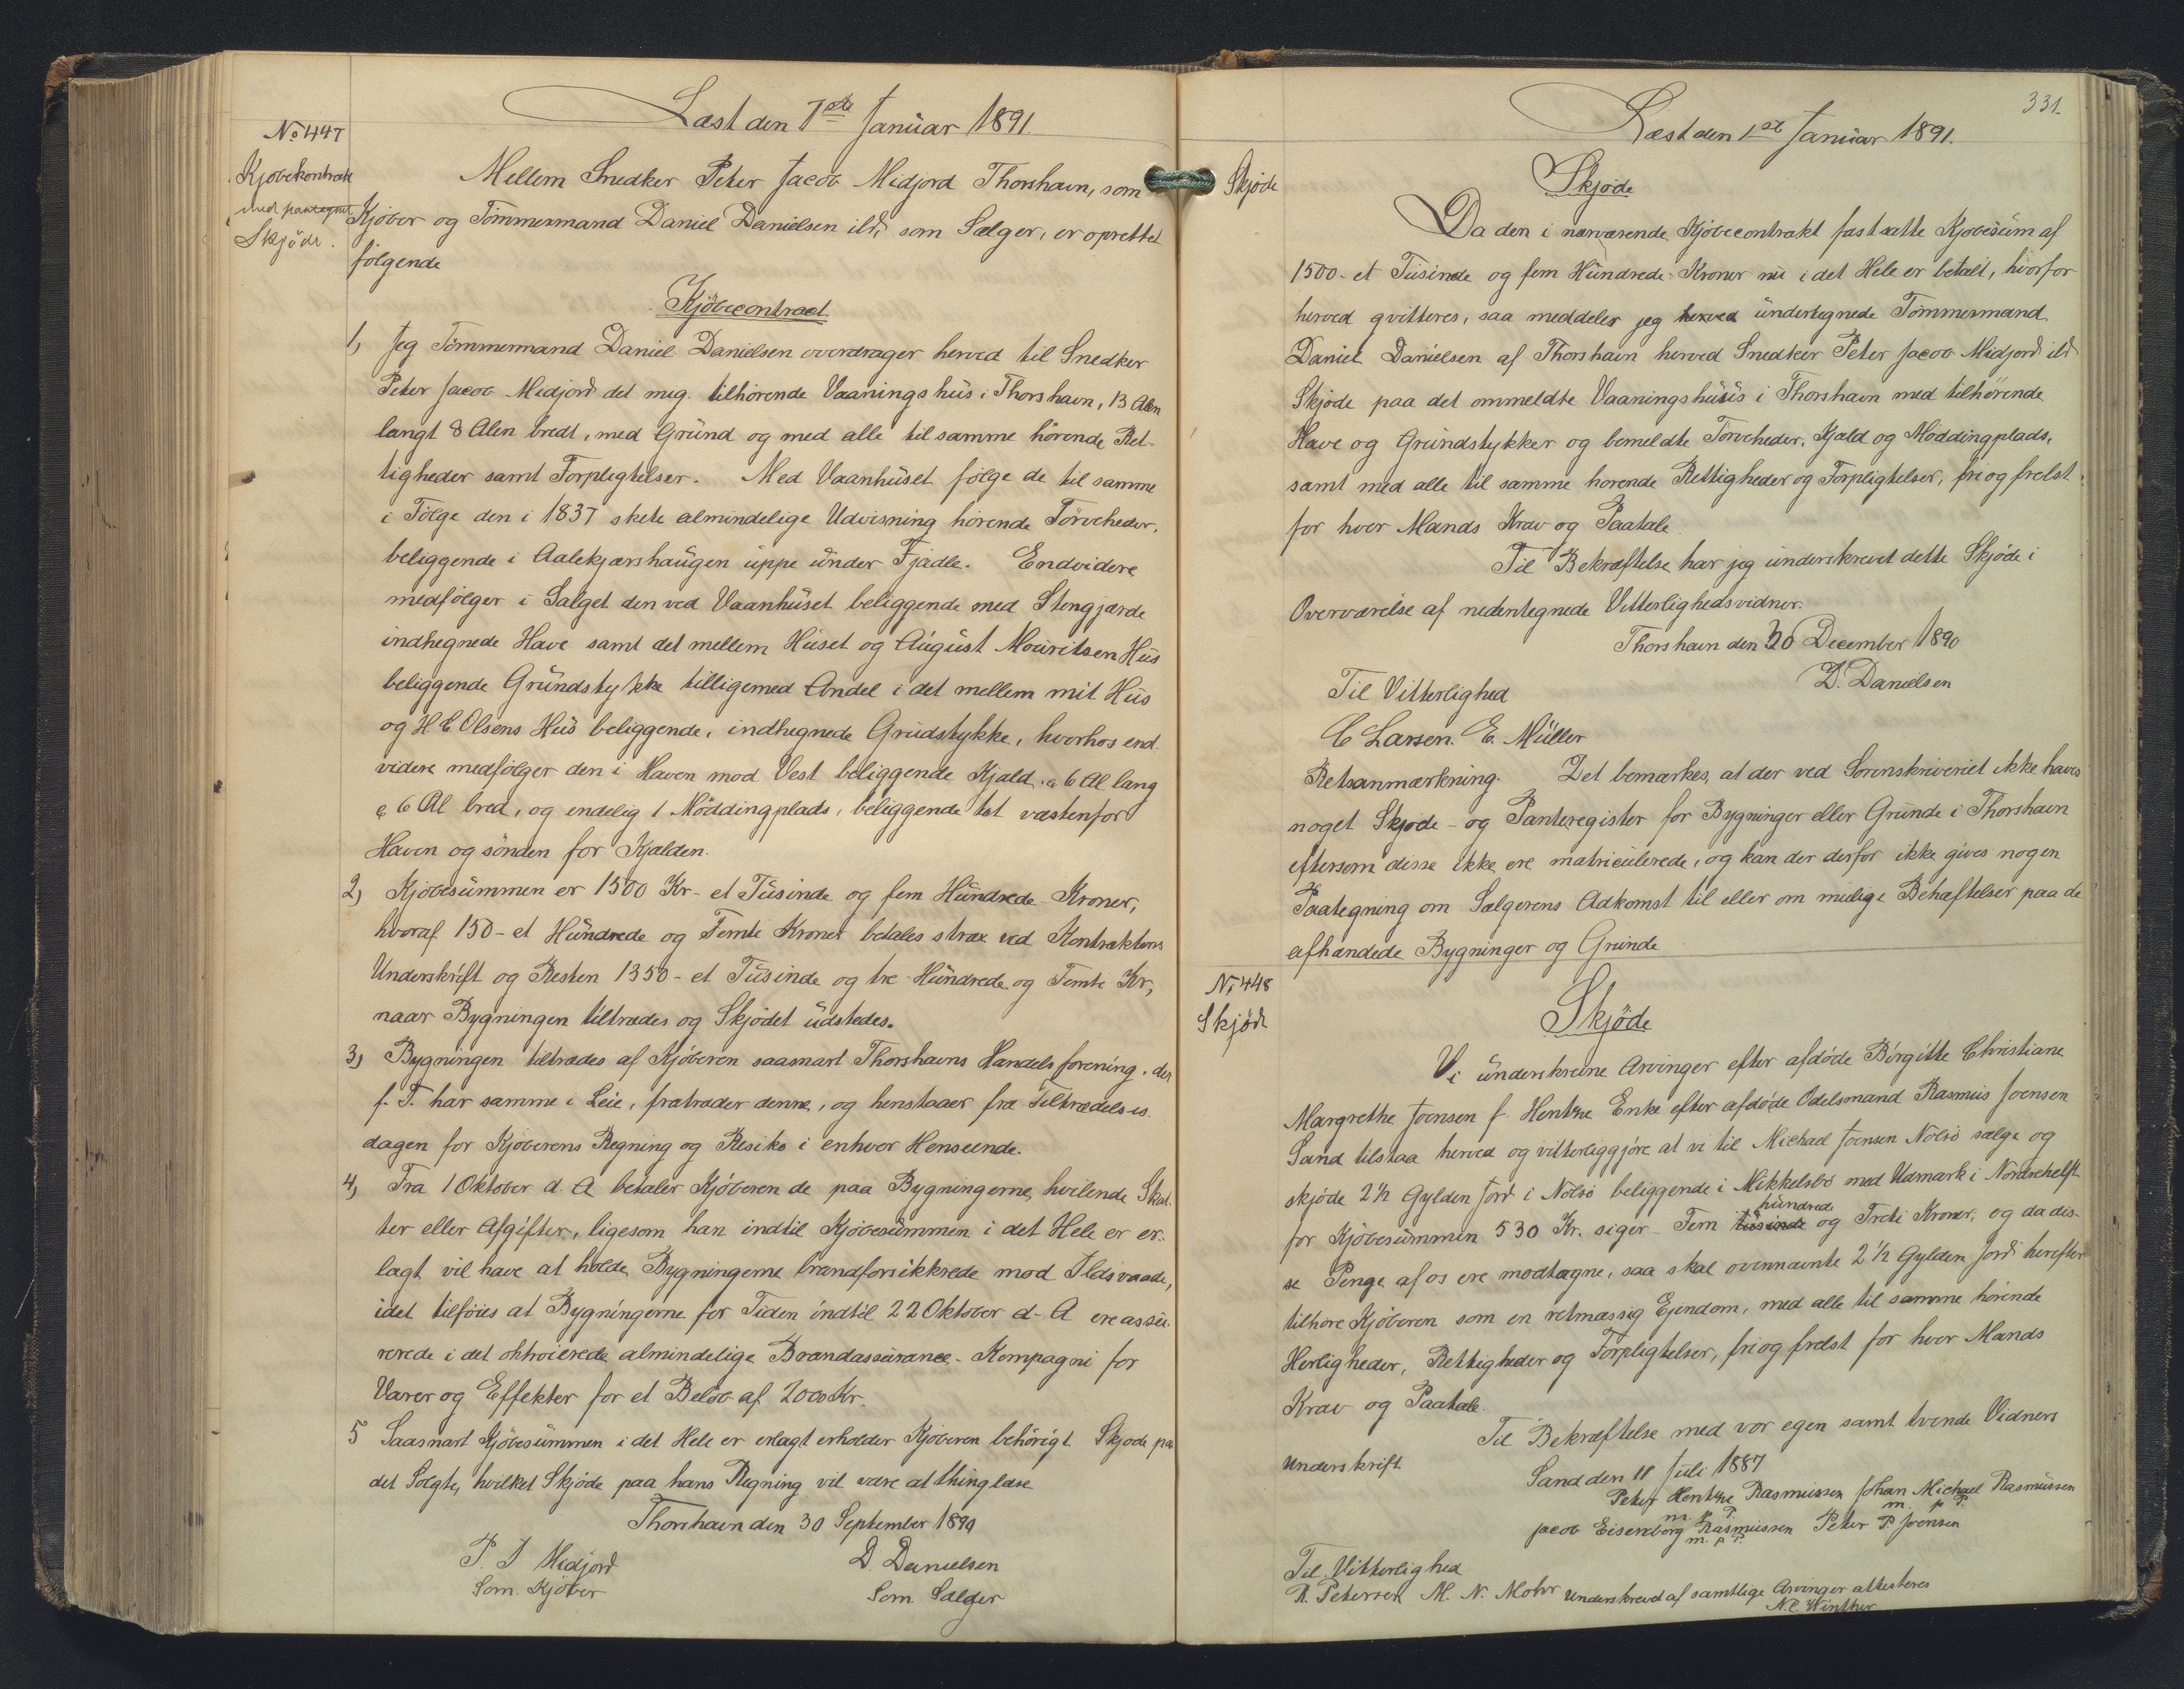 Læst den 1ste Januar 1891.
No 447
Kjøbekontrakt
med paategnet
Skjøde.
Mellem Snedker Peter Jacob Midjord Thorshavn, som
Kjøber og Tømmermand Daniel Danielsen ibd, som Sælger, er oprettet
følgende
Kjøbecontract.
1, Jeg Tømmermand Daniel Danielsen overdrager herved til Snedker
Peter Jacob Midjord det mig tilhørende Vaaningshus i Thorshavn, 13 Alen
langt 8 Alen bredt, med Grund og med alle til samme hørende Ret-
tigheder samt Forpligtelser. Med Vaanhuset følge de til samme
i Følge den i 1837 skete almindelige Udvisning hørende Tørveheder,
beliggende i Aalekjærshaugen uppe under Fjadle. Endvidere
medfølger i Salget den ved Vaanhuset beliggende med Stengjærde
indhegnede Have samt det mellem Huset og August Mouritsen Hus
beliggende Grundstykke tilligemed Andel i det mellem mit Hus
og H E Olsens Hus beliggende, indhegnede Grudstykke, hvorhos end-
videre medfølger den i Haven mod Vest beliggende Kjald, a 6 Al lang
a 6 Al bred, og endelig 1 Møddingplads, beliggende tæt vestenfor
Haven og sønden for Kjalden.
2, Kjøbesummen er 1500 Kr - et Tusinde og fem Hundrede Kroner,
hvoraf 150 - et Hundrede og Femti Kroner betales strax ved Kontraktens
Underskrift og Resten 1350 - et Tusinde og tre Hundrede og Femti Kr,
naar Bygningen tiltrædes og Skjødet udstedes.
3, Bygningen tiltrædes af Kjøberen saasnart Thorshavns Handelsforening, der
f. T. har samme i Leie, fratræder denne, og henstaaer fra Tiltrædelses
dagen for Kjøberens Regning og Resiko i enhver Henseende.
4, Fra 1 Oktober d. A betaler Kjøberen de paa Bygningerne hvilende Skat-
ter eller Afgifter, ligesom han indtil Kjøbesummen i det Hele er er-
lagt vil have at holde Bygningerne brandforsikkrede mod Ildsvaade,
idet tilføies at Bygningerne for Tiden indtil 22 Oktober d. A ere assu-
rerede i det oktroierede almindelige Brandassurance-Kompagni for
Varer og Effekter for et Beløb af 2000 Kr.
5 Saasnart Kjøbesummen i det Hele er erlagt erholder Kjøberen behørigt Skjøde paa
det Solgte, hvilket Skjøde paa hans Regning vil være at thinglæse
Thorshavn den 30 September 1890
P. J Midjord D. Danielsen
Som Kjøber Som Sælger
331.
Læst den 1ste Januar 1891.
Skjøde
Skjøde
Da den i nærværende Kjøbecontrakt fastsatte Kjøbesum af
1500 - et Tusinde og fem Hundrede - Kroner nu i det Hele er betalt, hvorfor
herved qvitteres, saa meddeler jeg herved undertegnede Tømmermand
Daniel Danielsen af Thorshavn herved Snedker Peter Jacob Midjord ibd
Skjøde paa det ommeldte Vaaningshuus i Thorshavn med tilhørende
Have og Grundstykker og bemeldte Tørveheder, Kjald og Møddingplads,
samt med alle til samme hørende Rettigheder og Forpligtelser, fri og frelst
for hver Mands Krav og Paatale
Til Bekræftelse har jeg underskrevet dette Skjøde i
Overværelse af nedentegnede Vitterlighedsvidner.
Thorshavn den 30 December 1890
D. Danielsen
Til Vitterlighed
C Larsen. E. Müller
Retsanmærkning. Det bemærkes, at der ved Sorenskriveriet ikke haves
noget Skjøde- og Panteregister for Bygninger eller Grunde i Thorshavn
eftersom disse ikke ere matriculerede, og kan der derfor ikke gives nogen
Paategning om Sælgerens Adkomst til eller om mulige Behæftelser paa de
afhændede Bygninger og Grunde
No 448
Skjøde
Skjøde
Vi underskrevne Arvinger efter afdøde Birgitte Christiane
Margrethe Joensen f. Hentze Enke efter afdøde Odelsmand Rasmus Joensen
Sand tilstaa herved og vitterliggjøre at vi til Michael Joensen Nolsø sælge og
skjøde 2 1/2 Gylden Jord i Nolsø beliggende i Mikkelsbø med Udmark i Nordrehelft
for Kjøbesummen 530 Kr. siger - Fem tusinde hundrede og Tredi Kroner, og da dis-
se Penge af os ere modtagne, saa skal ovennævnte 2 1/2 Gylden Jord herefter
tilhøre Kjøberen som en retmæssig Ejendom, med alle til samme hørende
Herligheder, Rettigheder og Forpligtelser, fri og frelst for hver Mands
Krav og Paatale.
Til Bekræftelse med vor egen samt tvende Vidners
Underskrift
Sand den 11 Juli 1887
Peter Hentze Rasmussen Johan Michael Rasmussen
m. p. P. m. p P.
Jacob Eisenborg Rasmussen Peter P. Joensen
m. p P.
Til Vitterlighed
R. Petersen M. N. Mohr Underskrevet af samtlige Arvinger attesteres
N. C. Winther